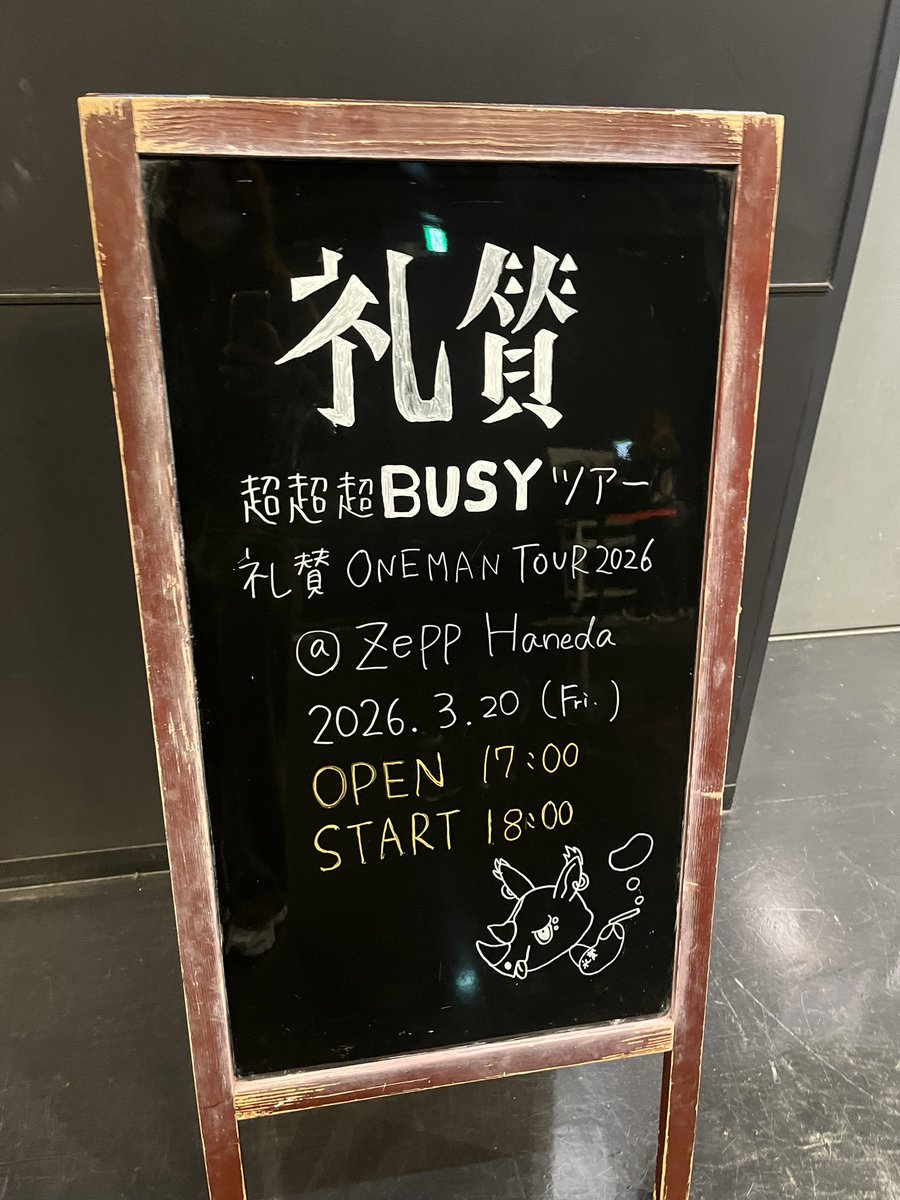 礼賛
超超超BUSYツアー
礼賛 ONEMAN TOUR 2026
@ Zepp Haneda
2026.3.20 (Fri.)
OPEN 17:00
START 18:00
礼賛